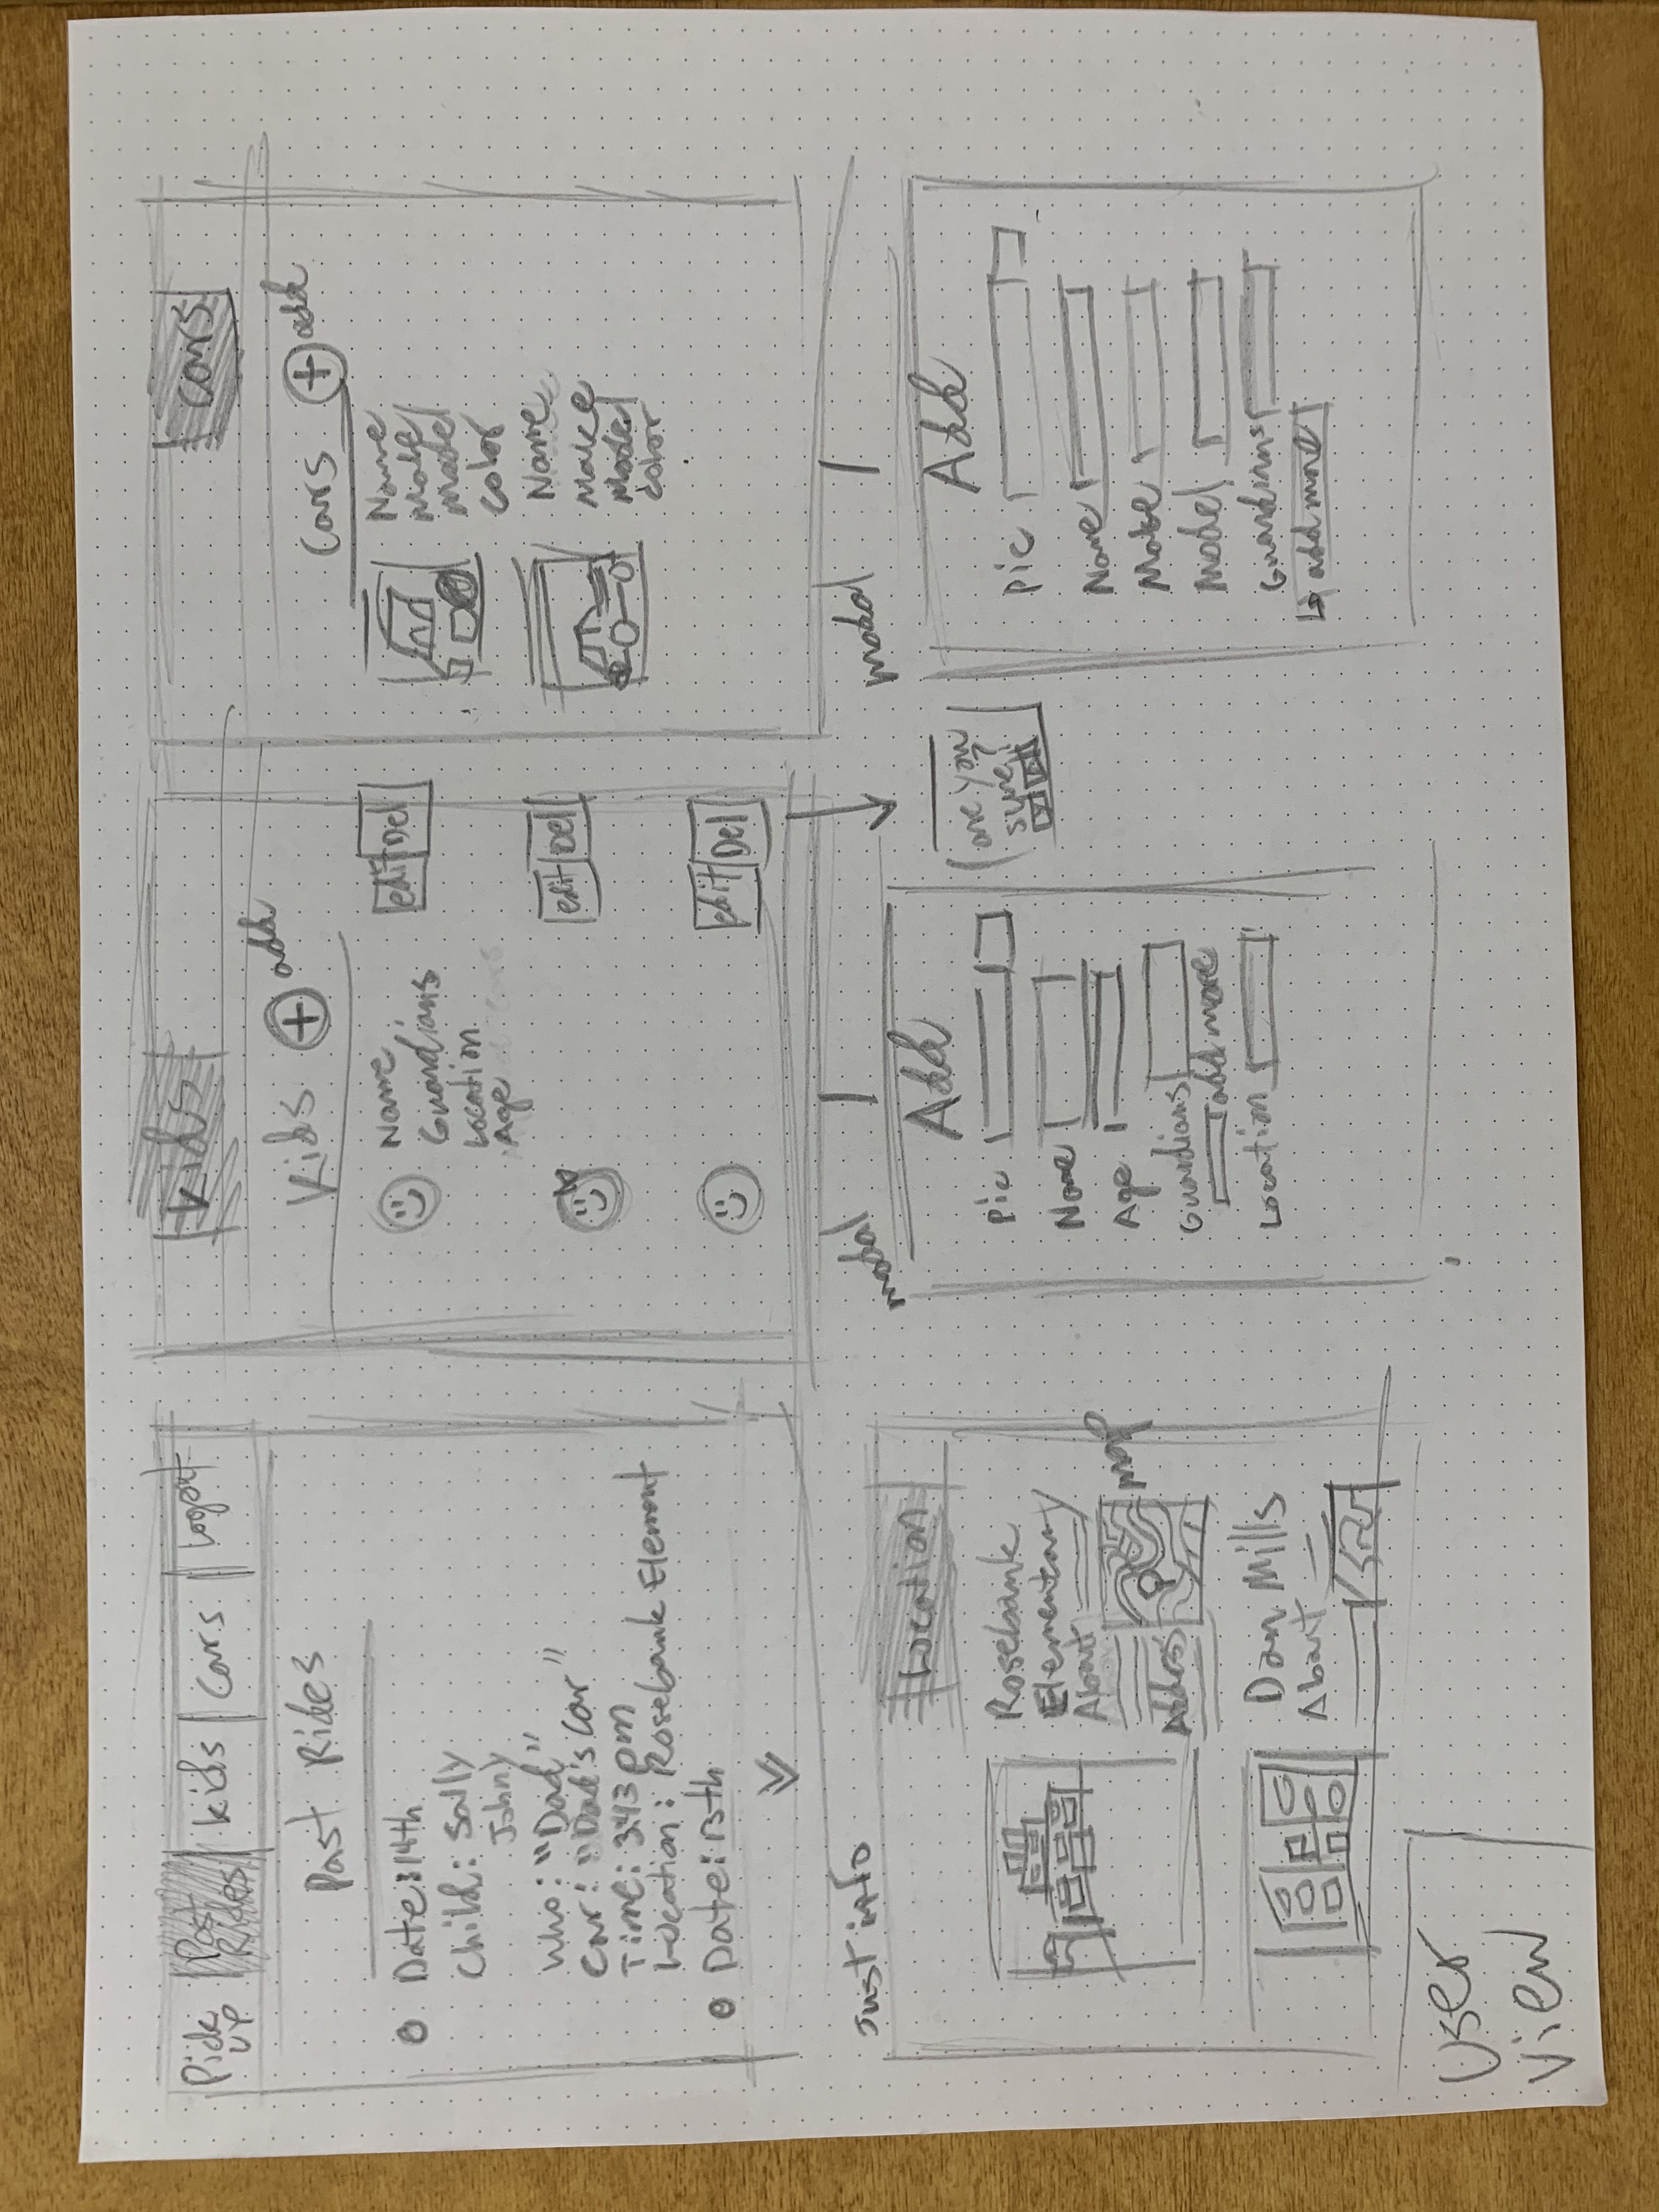 Pick UP
Past Rides
Kids
Cars
Logout
Past Rides
Date: 14th
Child: Sally
Johny
Who: "Dad"
Car: "Dad's Car"
Time: 3:43 pm
Location: Rosebank Element
Date: 13th
Kids
Kids + add
Name
Guardians
Location
Age
edit Del
edit Del
edit Del
Cars
Cars + add
Name
Make
Model
Color
Name
Make
Model
Color
Just info
Location
Rosebank
Elementary
About
Address
map
Don Mills
About
modal
Add
Pic
Name
Age
Guardians
add more
Location
are you
sure?
modal
Add
Pic
Name
Make
Model
Guardians
add more
User
View